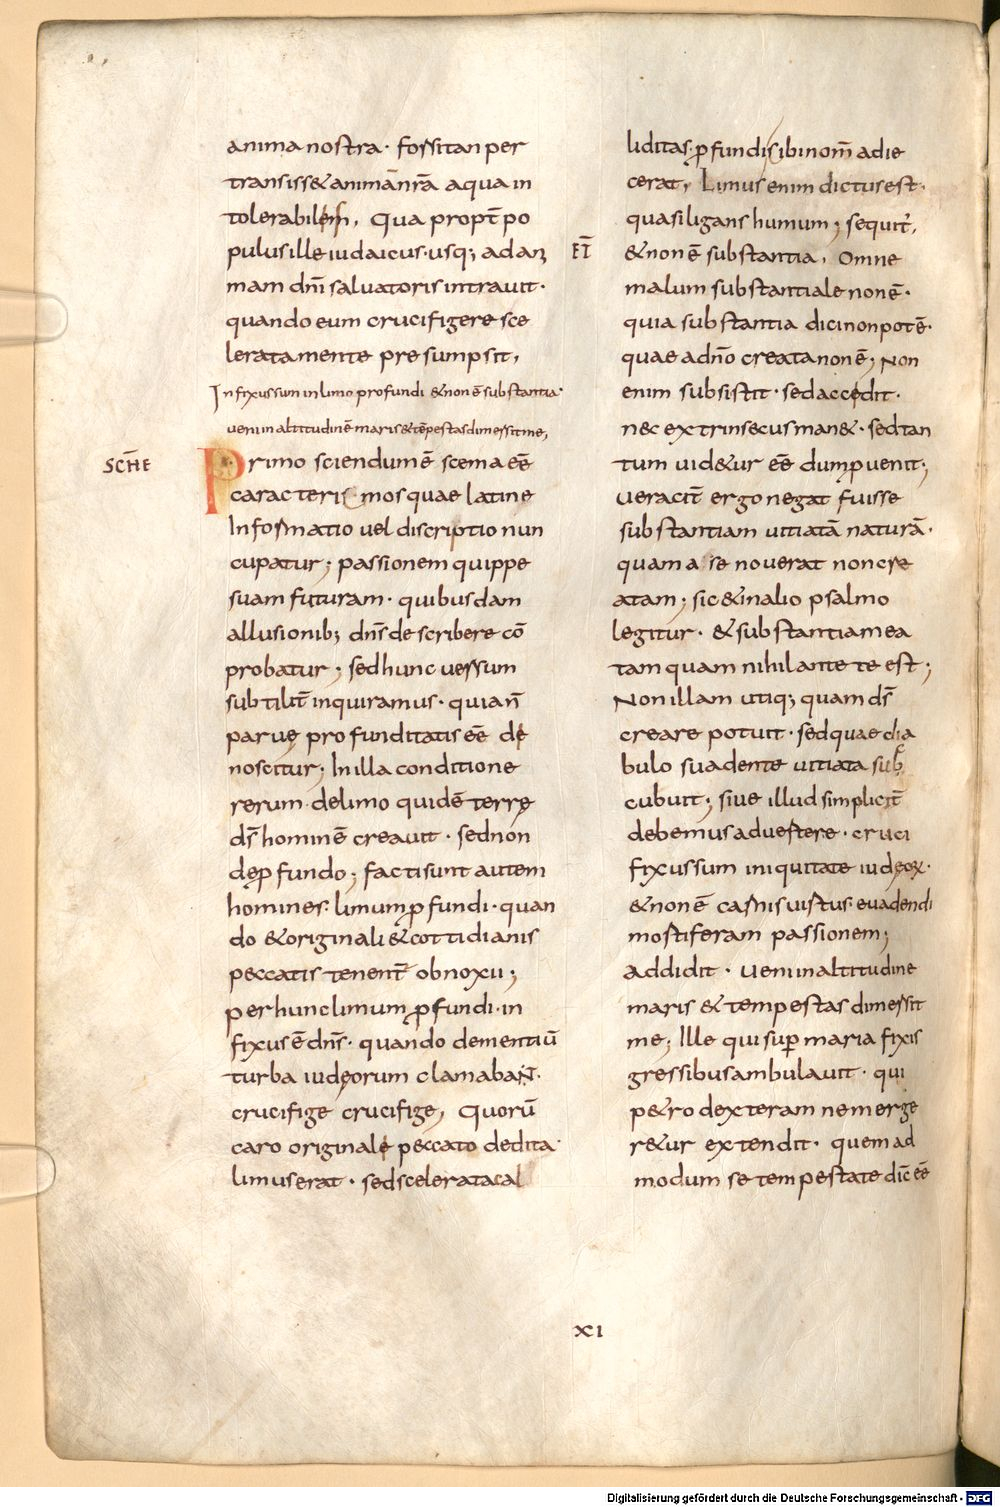 anima nostra· forsitan per
transiss& animā nr̄a aqua in
tolerabilem, Qua propt̄ po
pulus ille iudaicus· usq; ad ani
mam dn̄i salvatoris intrauit·
quando eum crucifigere sce
leratamente presumpsit,
Infixus sum in limo profundi & non ē substantia·
ueni in altitudinē maris & tēpestas dimersit me,
SCHE
Primo sciendum ē scema eē
caracteris mos quae latine
Informatio uel discriptio nun
cupatur; passionem quippe
suam futuram· quibusdam
allusionib; dn̄s describere cō
probatur; sed hunc uersum
subtilit̄ inquiramus· quia n̄
paruę profunditatis eē de
noscitur; In illa conditione
rerum· de limo quidē terrę
ds̄ hominē creauit· sed non
de ꝓfundo; facti sunt autem
homines· limum ꝓfundi· quan
do & originali & cottidianis
peccatis tenent̄ obnoxii;
per hunc limum ꝓfundi· in
fixus ē dn̄s· quando dementiū
turba iudęorum clamabant·
crucifige crucifige, Quorū
caro originale peccato dedita·
limus erat· sed scelerata cal
liditas· ꝓfundi sibi nom̄ adie
cerat, Limus enim dictus est·
quasi ligans humum; sequit̄,
ET̄
& non ē substantia, Omne
malum substantiale non ē·
quia substantia dici non potē·
quae a dn̄o creata non ē; Non
enim subsistit· sed accedit·
nec extrinsecus man&· sed tan
tum uid&ur eē dum ꝓuenit;
ueracit̄ ergo negat fuisse
substantiam uitiatā naturā·
quam a se nouerat non cre
atam; sic & in alio psalmo
legitur· & substantia mea
tamquam nihil ante te est;
Non illam utiq; quam ds̄
creare potuit· sed quae dia
bulo suadente uitiata suc
cubuit; siue illud simplicit̄
debemus aduertere· cruci
fixus sum iniquitate iudęoꝝ·
& non ē carnis uirtus· euadendi
mortiferam passionem;
addidit· ueni in altitudine
maris & tempestas dimersit
me; Ille qui sup̄ maria fixis
gressibus ambulauit· qui
p&ro dexteram ne merge
r&ur extendit· quem ad
modum se tempestate dic̄ eē
XI
Digitalisierung gefördert durch die Deutsche Forschungsgemeinschaft - DFG